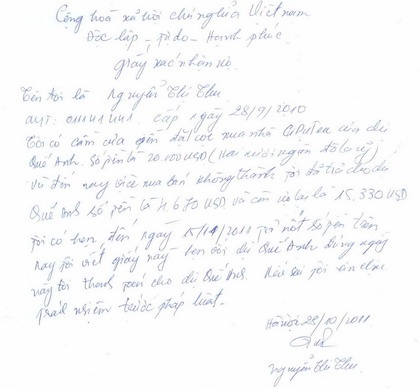 Cộng hoà xã hội chủ nghĩa Việt nam
Độc lập - Tự do - Hạnh phúc
giấy xác nhận nợ
Tên tôi là Nguyễn Thị Thu
cấp ngày 28/9/2010
Tôi có cầm của tiền đặt cọc mua nhà của dì
Quế Anh số tiền là 20.000 USD (Hai mươi ngàn đô la Mỹ)
Và đến nay việc mua bán không thành tôi đã trả cho dì
Quế Anh số tiền là 4.670 USD và còn nợ lại là 15.330 USD
Tôi có hẹn đến ngày 15/11/2011 trả nốt số tiền trên
nay tôi viết giấy này hẹn với dì Quế Anh đúng ngày
này tôi thanh toán cho dì Quế Anh. Nếu sai tôi xin chịu
trách nhiệm trước pháp luật.
Hà nội 28/10/2011
Nguyễn Thị Thu